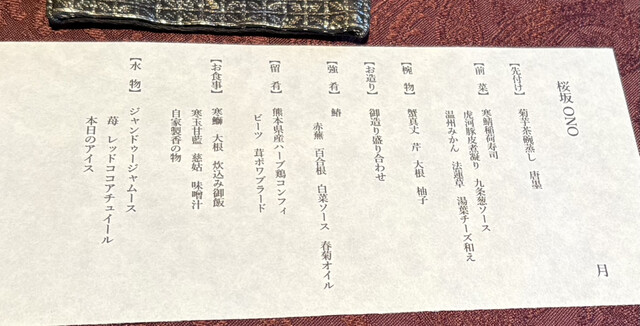 桜坂ONO
月
【先付け】 菊芋茶碗蒸し 唐墨
【前 菜】 寒鯖稲荷寿司 九条葱ソース
虎河豚皮煮凝り
温州みかん 法蓮草 湯葉チーズ和え
【椀 物】 蟹真丈 芹 大根 柚子
【お造り】 御造り盛り合わせ
【強 肴】 鰆
赤蕪 百合根 白菜ソース 春菊オイル
【留 肴】 熊本県産ハーブ鶏コンフィ
ビーツ 茸ポワブラード
【お食事】 寒鰤 大根 炊込み御飯
寒玉甘藍 慈姑 味噌汁
自家製香の物
【水 物】 ジャンドゥージャムース
苺 レッドココアチュイール
本日のアイス